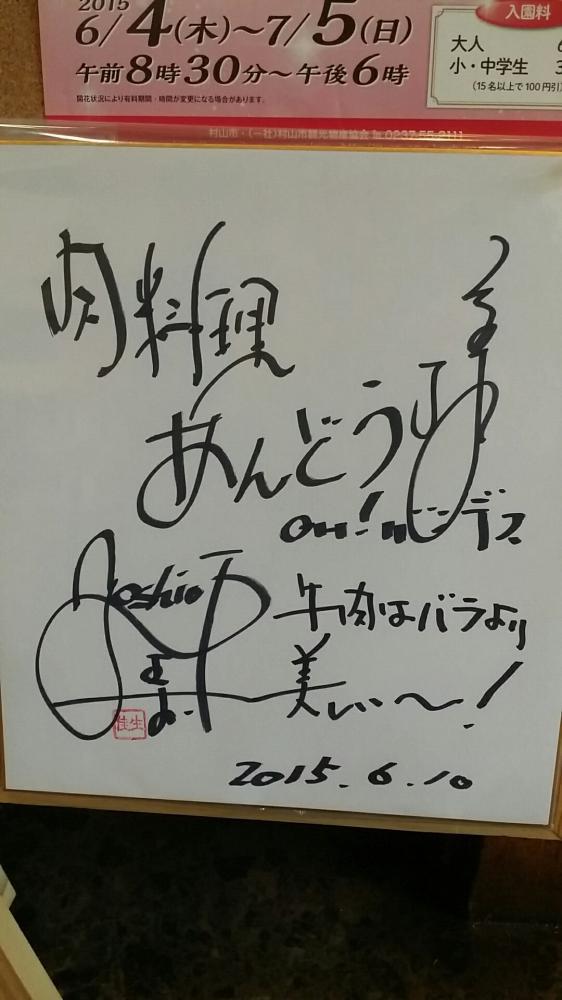 2015
6/4(木)~7/5(日)
午前8時30分~午後6時
開花状況により有料期間・時間が変更になる場合があります。
入園料
大人 6
小・中学生 3
(15名以上で100円引)
村山市・(一社)村山市観光物産協会 ℡0237-55-2111
肉料理
あんどう
oh!
デス
Yoshio
牛肉はバラより
美しい〜!
佳生
2015.6.10